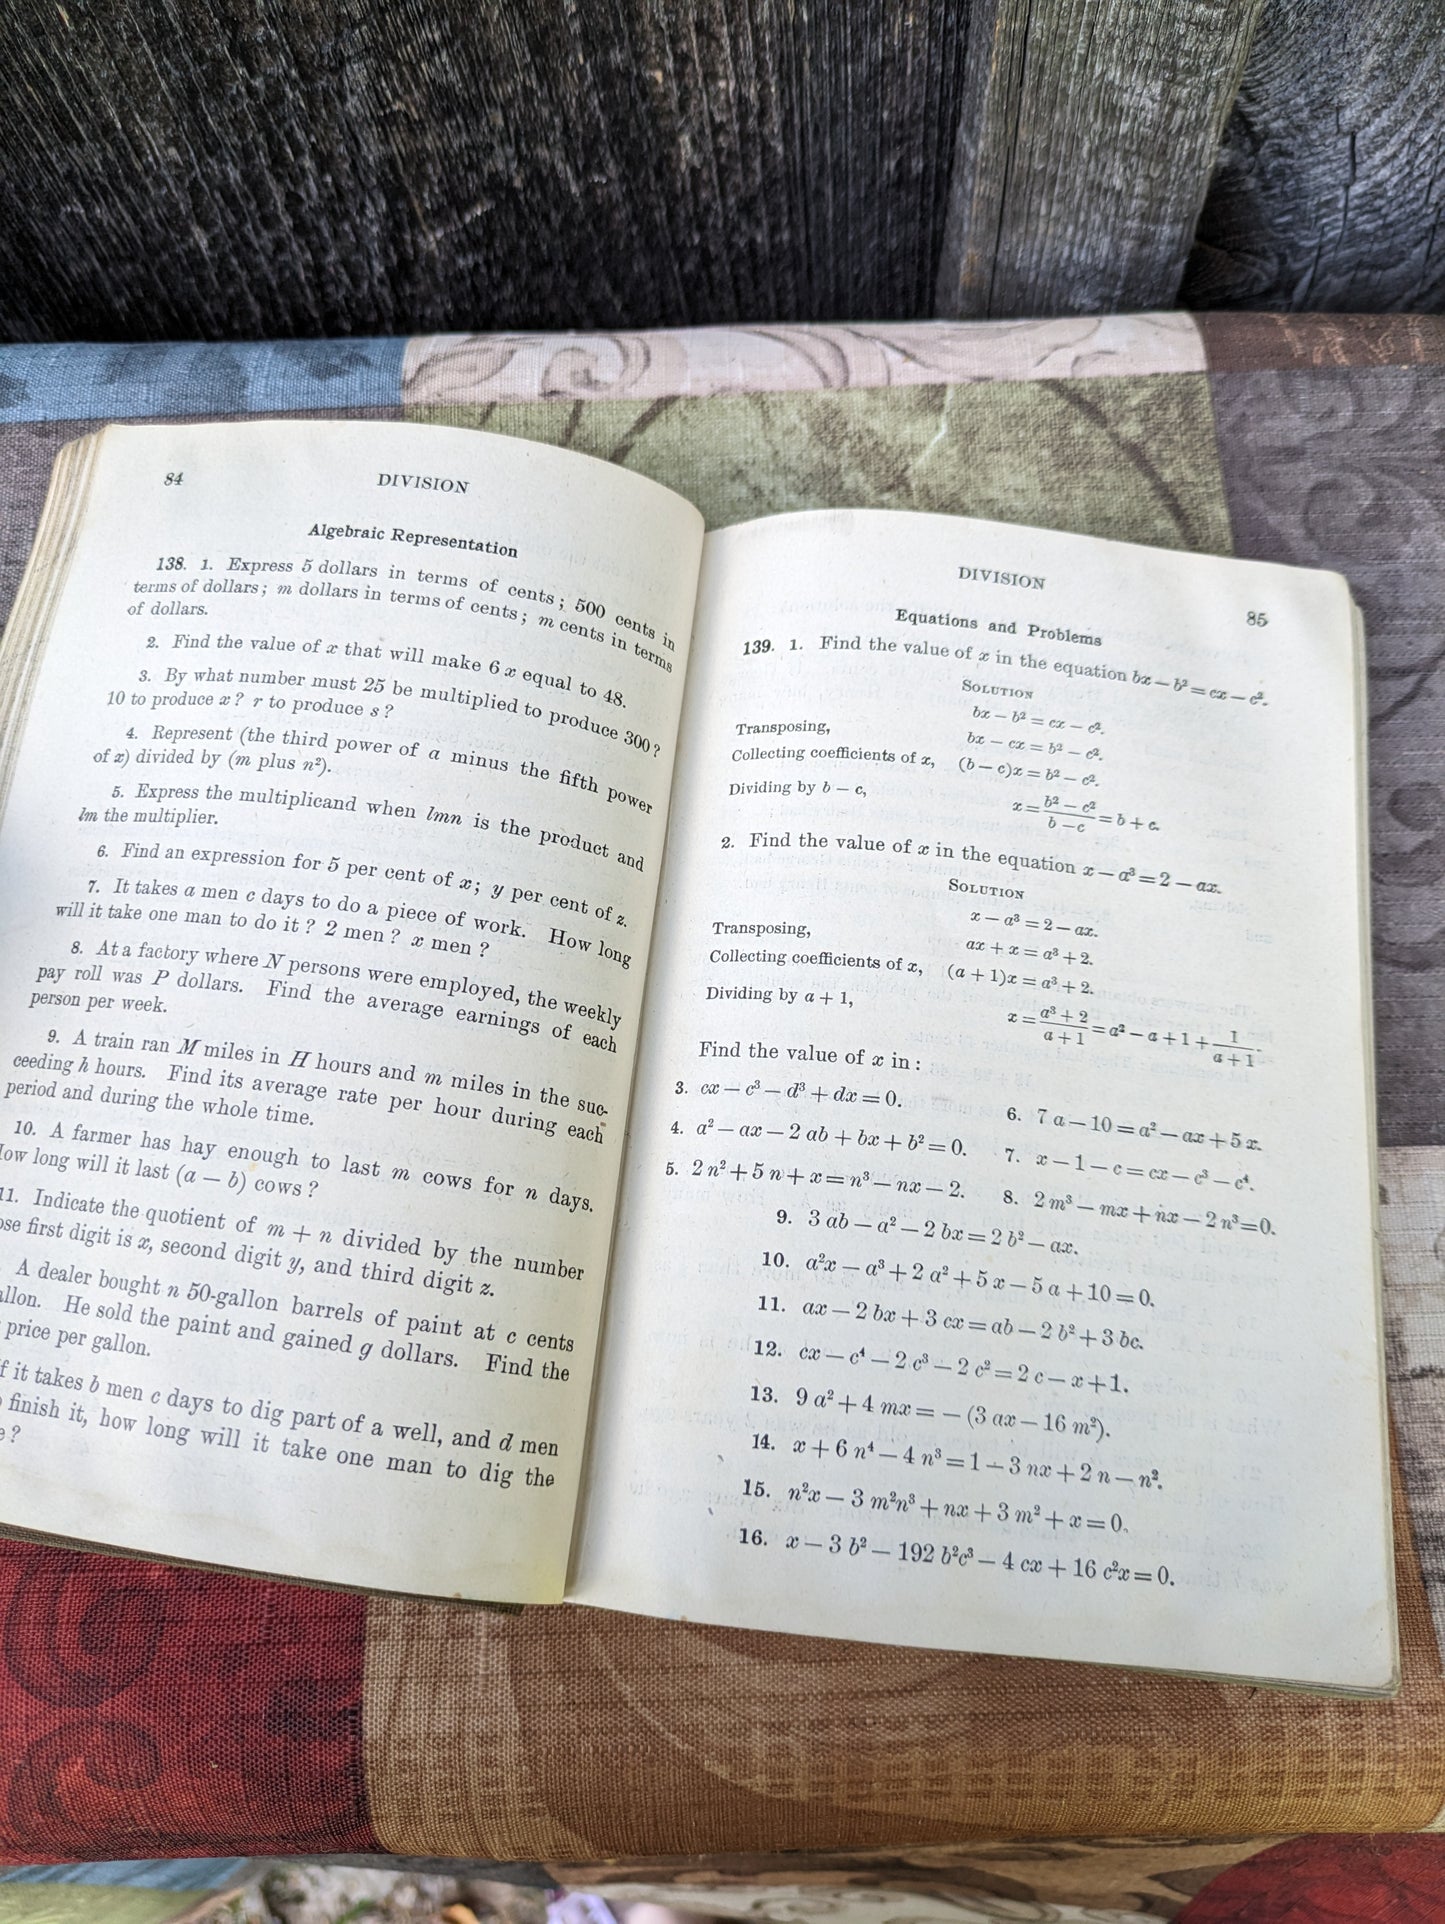 84
DIVISION
Algebraic Representation
138. 1. Express 5 dollars in terms of cents; 500 cents in
terms of dollars; m dollars in terms of cents; m cents in terms
of dollars.
2. Find the value of x that will make 6 x equal to 48.
3. By what number must 25 be multiplied to produce 300?
10 to produce x? r to produce s?
4. Represent (the third power of a minus the fifth power
of x) divided by (m plus n²).
5. Express the multiplicand when lmn is the product and
lm the multiplier.
6. Find an expression for 5 per cent of x; y per cent of z.
7. It takes a men c days to do a piece of work. How long
will it take one man to do it? 2 men? x men?
8. At a factory where N persons were employed, the weekly
pay roll was P dollars. Find the average earnings of each
person per week.
9. A train ran M miles in H hours and m miles in the suc-
ceeding h hours. Find its average rate per hour during each
period and during the whole time.
10. A farmer has hay enough to last m cows for n days.
How long will it last (a − b) cows?
11. Indicate the quotient of m + n divided by the number
first digit is x, second digit y, and third digit z.
A dealer bought n 50-gallon barrels of paint at c cents
He sold the paint and gained g dollars. Find the
price per gallon.
If it takes b men c days to dig part of a well, and d men
finish it, how long will it take one man to dig the
?
DIVISION
85
Equations and Problems
139. 1. Find the value of x in the equation bx − b² = cx − c².
SOLUTION
bx − b² = cx − c².
Transposing, bx − cx = b² − c².
Collecting coefficients of x, (b − c)x = b² − c².
Dividing by b − c, x = (b² − c²)/(b − c) = b + c.
2. Find the value of x in the equation x − a³ = 2 − ax.
SOLUTION
x − a³ = 2 − ax.
Transposing, ax + x = a³ + 2.
Collecting coefficients of x, (a + 1)x = a³ + 2.
Dividing by a + 1, x = (a³ + 2)/(a + 1) = a² − a + 1 + 1/(a + 1).
Find the value of x in:
3. cx − c³ − d³ + dx = 0.
4. a² − ax − 2 ab + bx + b² = 0.
5. 2 n² + 5 n + x = n³ − nx − 2.
6. 7 a − 10 = a² − ax + 5 x.
7. x − 1 − c = cx − c³ − c⁴.
8. 2 m³ − mx + nx − 2 n³ = 0.
9. 3 ab − a² − 2 bx = 2 b² − ax.
10. a²x − a³ + 2 a² + 5 x − 5 a + 10 = 0.
11. ax − 2 bx + 3 cx = ab − 2 b² + 3 bc.
12. cx − c⁴ − 2 c³ − 2 c² = 2 c − x + 1.
13. 9 a² + 4 mx = − (3 ax − 16 m²).
14. x + 6 n⁴ − 4 n³ = 1 − 3 nx + 2 n − n².
15. n²x − 3 m²n³ + nx + 3 m² + x = 0.
16. x − 3 b² − 192 b²c³ − 4 cx + 16 c²x = 0.